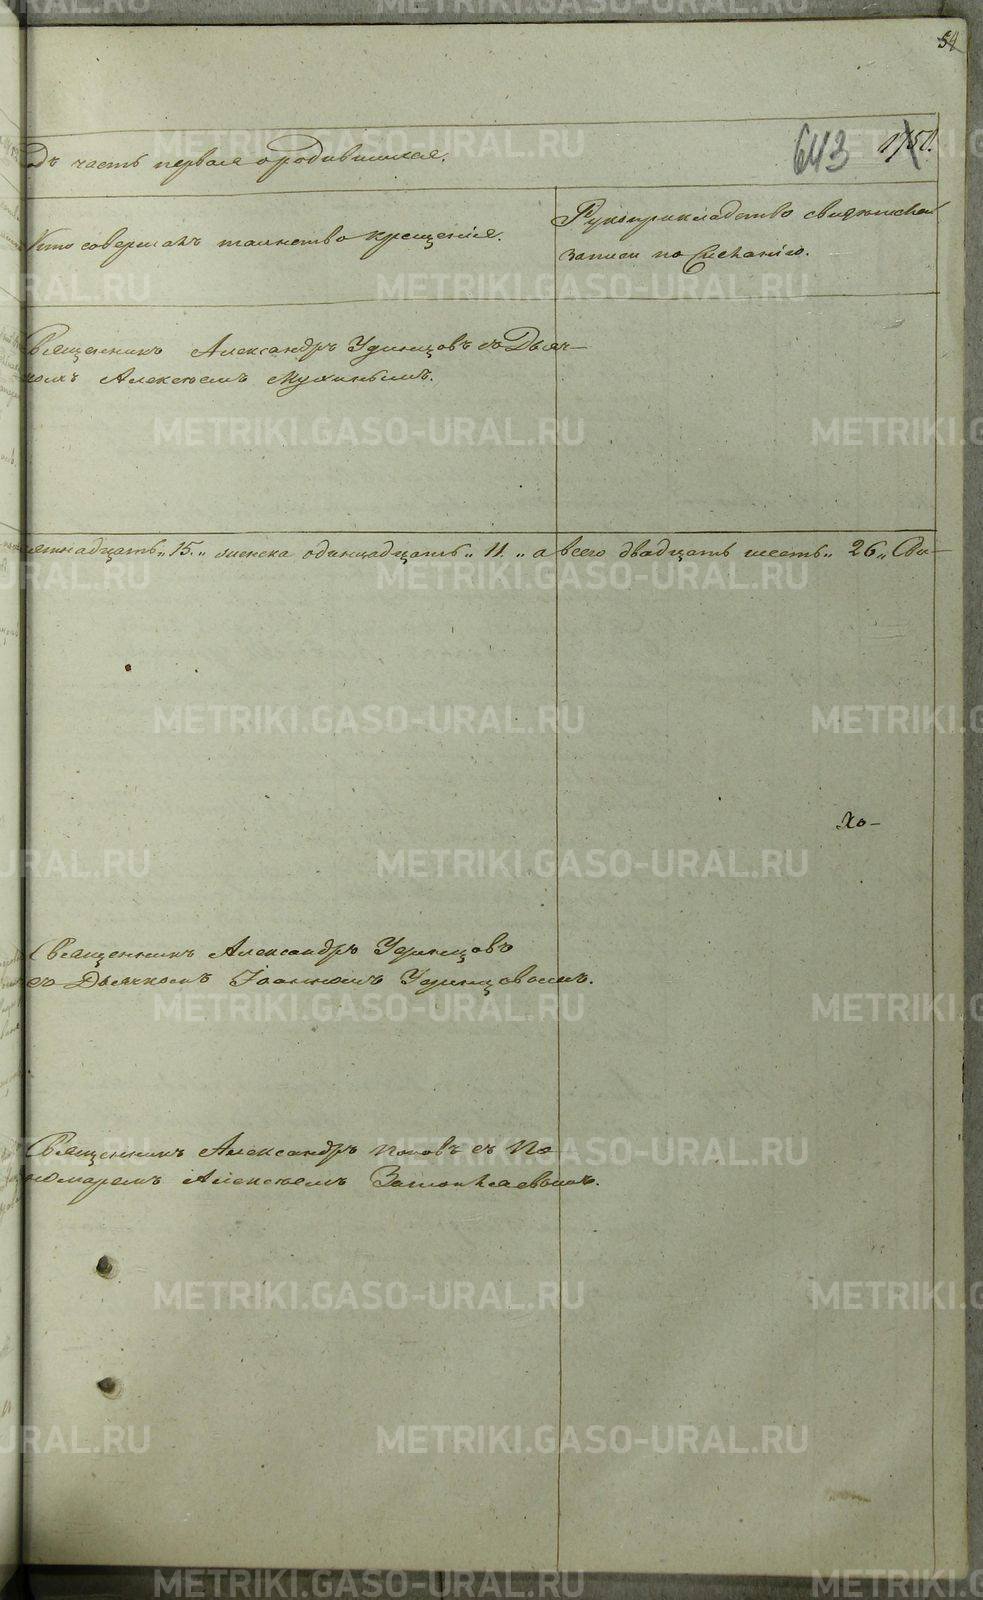 54
643 1758.
дъ часть первая о родившихся.
Кто совершалъ таинство крещенія.
Рукоприкладство свидѣтелей
записи по желанію.
Священникъ Александръ Удинцовъ съ Дьяч-
комъ Алексѣемъ
ятнадцать „15„ женска одинадцать „11„ а всего двадцать шесть „26„ Сви-
Хо-
Священникъ Александръ Удинцовъ
съ Дьячкомъ Іоанномъ Удинцовымъ.
Священникъ Александръ Поповъ съ По-
номаремъ Алексѣемъ
METRIKI.GASO-URAL.RU